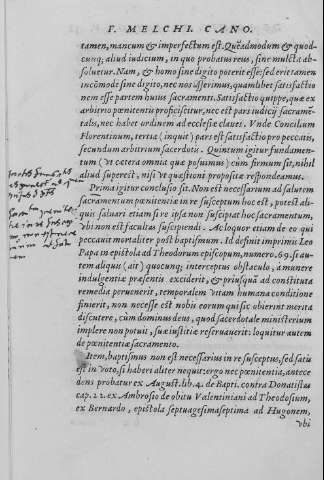 F. MELCHI. CANO.
tamen, mancum & imperfectum est. Quēadmodum & quod-
cunq; aliud iudicium, in quo probatus reus, sine mulcta ab-
soluetur. Nam, & homo sine digito poterit esse: sed erit tamen
incōmode sine digito, nec nos asserimus, quamlibet satisfactio
nem esse partem huius sacramenti. Satisfactio quippe, quæ ex
arbitrio pœnitentis proficiscitur, nec est pars iudicij sacramē-
talis, nec habet ordinem ad ecclesiæ claues. Vnde Concilium
Florentinum, tertia (inquit) pars est satisfactio pro peccatis,
secundum arbitrium sacerdotis. Quintum igitur fundamen-
tum (vt cætera omnia quæ posuimus) cum firmum sit, nihil
aliud superest, nisi vt quæstioni propositæ respondeamus.
Prima igitur conclusio sit. Non est necessarium ad salutem
sacramentum pœnitentiæ in re susceptum hoc est, potest ali-
quis saluari etiam si re ipsa non suscipiat hoc sacramentum,
vbi non est facultas suscipiendi. Ac loquor etiam de eo qui
peccauit mortaliter post baptismum. Id definit imprimis Leo
Papa in epistola ad Theodorum episcopum, numero .69. si au-
tem aliquis (ait) quocunq; interceptus obstaculo, a munere
indulgentiæ præsentis exciderit, & priusquā ad constituta
remedia perueniret, temporalem vitam humana conditione
finierit, non necesse est nobis eorum qui sic obierint merita
discutere, cum dominus deus, quod sacerdotale ministerium
implere non potuit, suæ iustitiæ reseruauerit: loquitur autem
de pœnitentiæ sacramento.
Item, baptismus non est necessarius in re susceptus, sed satis
est in voto, si haberi aliter nequit: ergo nec pœnitentia, antece
dens probatur ex August. lib. 4. de Bapti. contra Donatistas
cap. 22. ex Ambrosio de obitu Valentiniani ad Theodosium,
ex Bernardo, epistola septuagesimaseptima ad Hugonem,
vbi